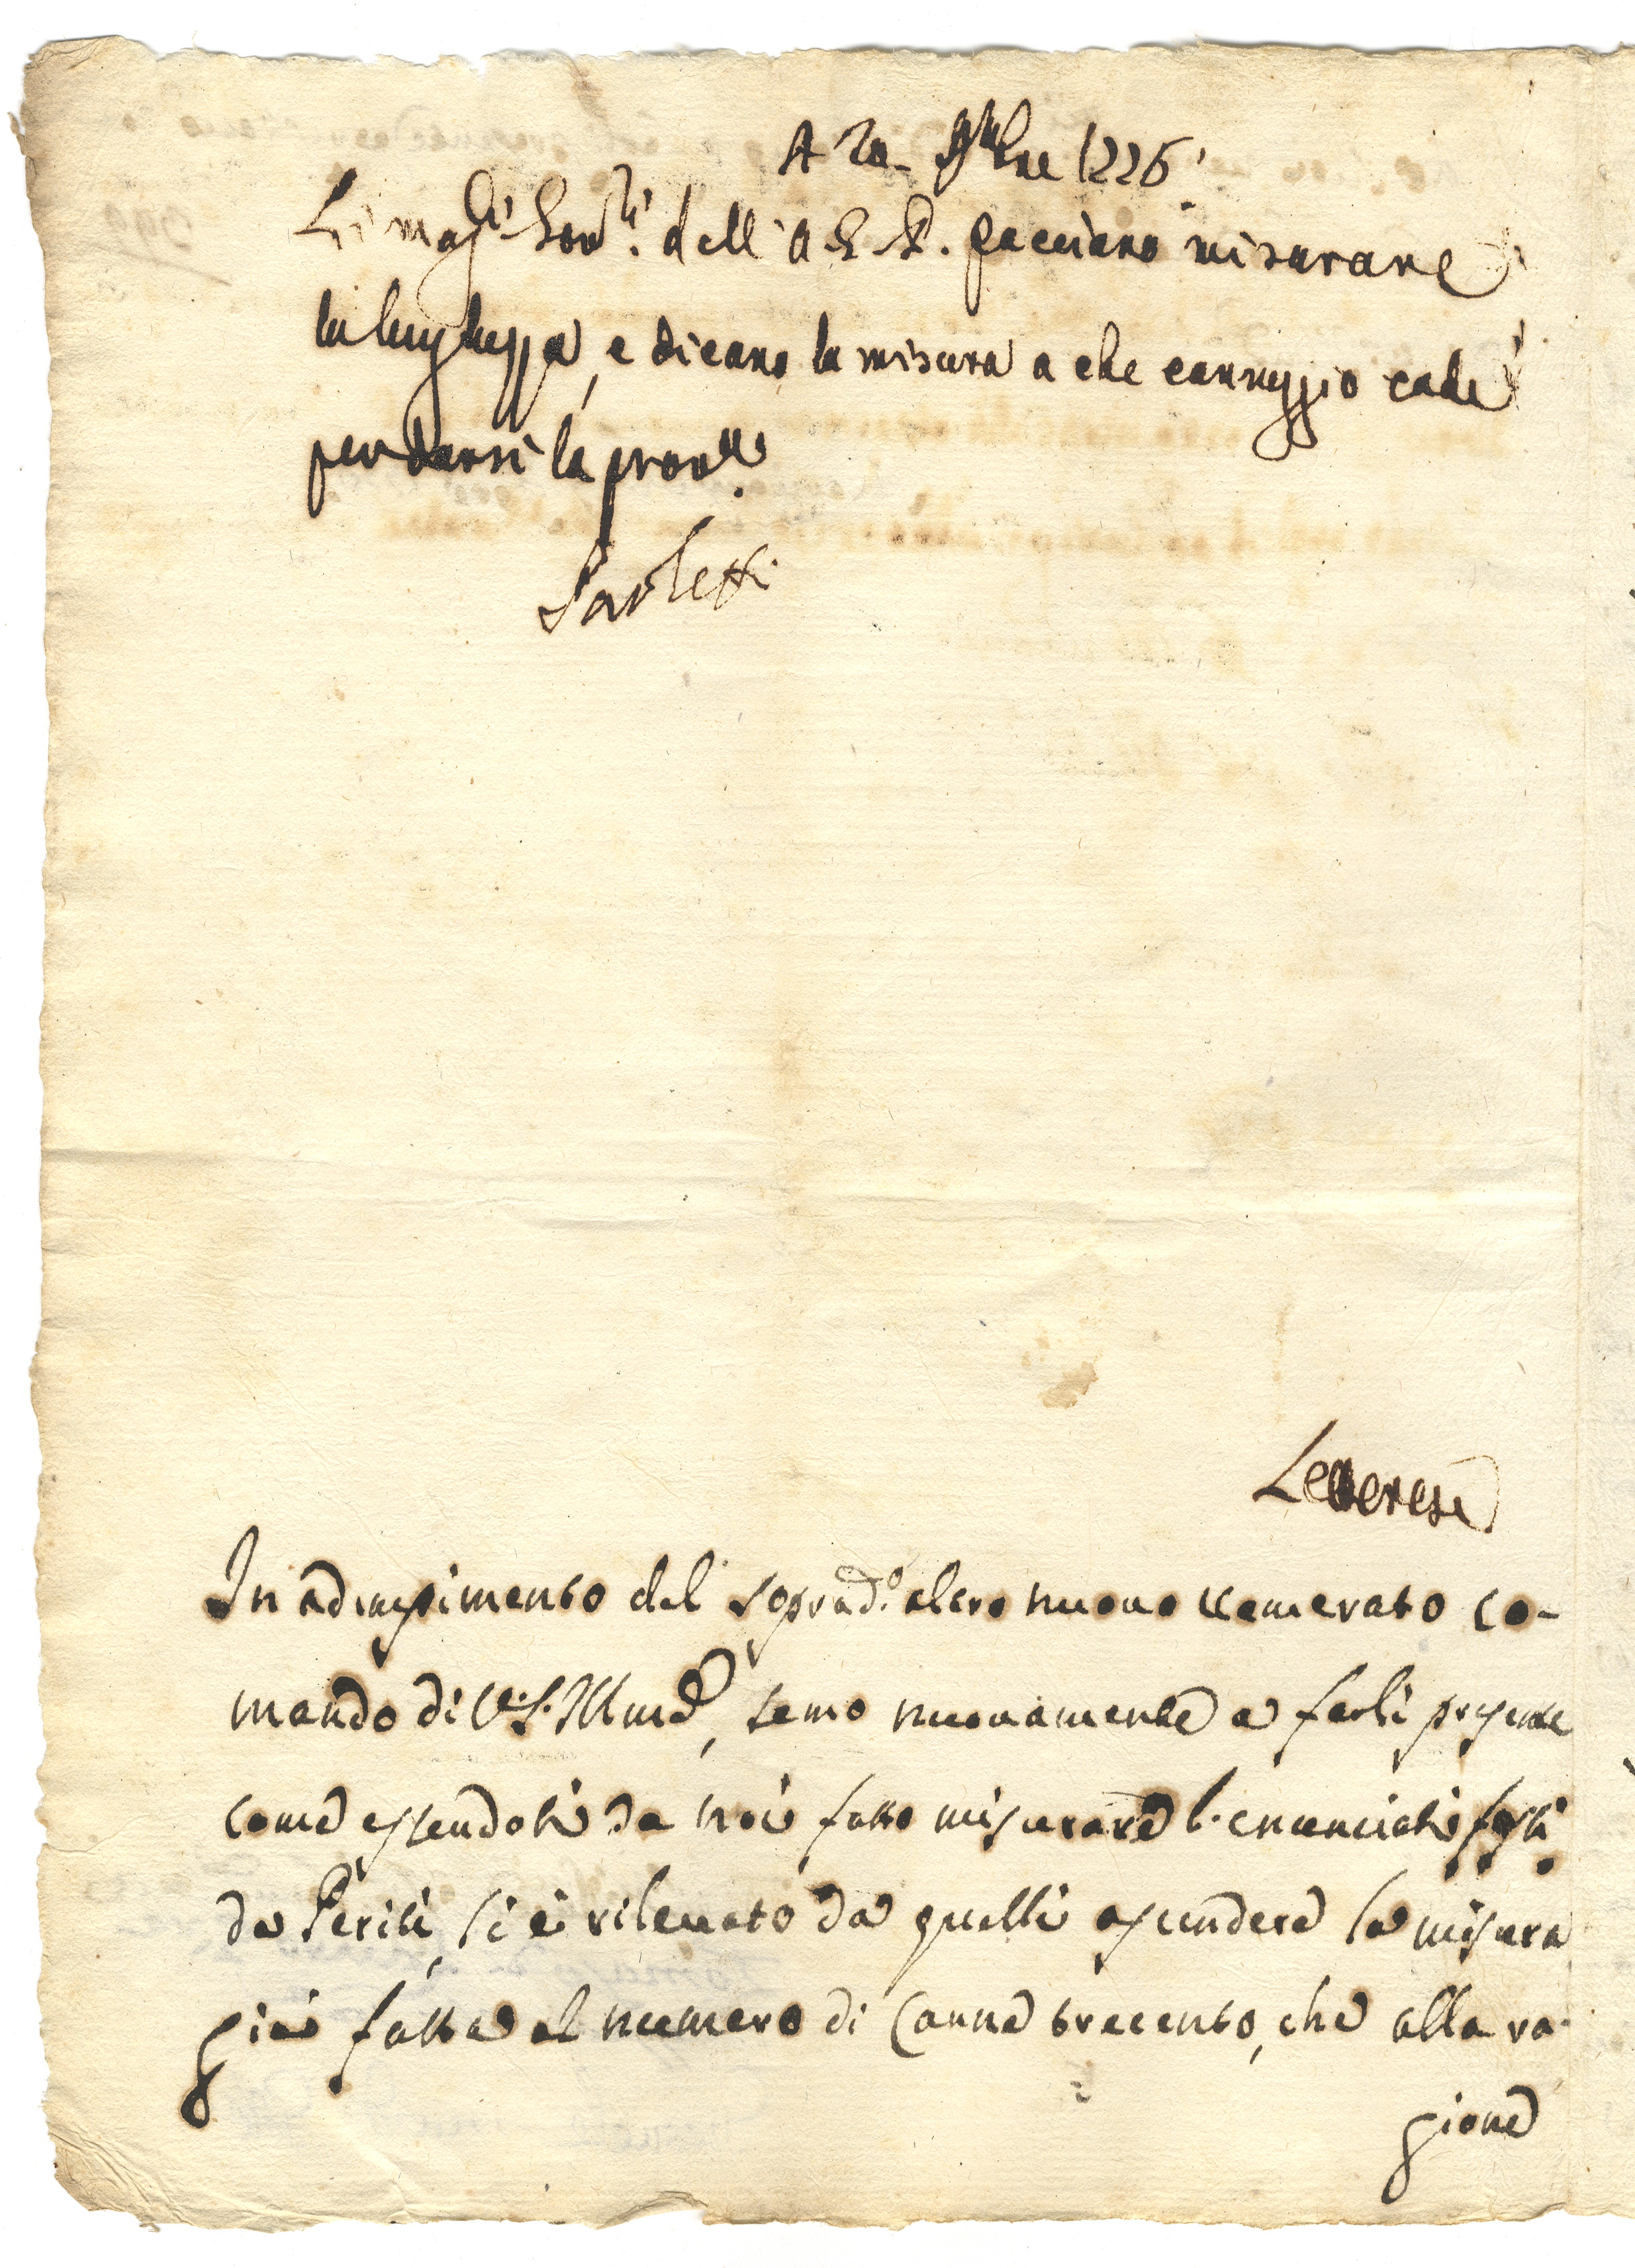 A 20 9bre 1776
Li mag.ci Gov.ri dell' A. G. P. facciano misurare
la lunghezza, e dicano la misura a che carreggio cade
per darsi la provv.e
Paoletti
Leverese
In adimpimento del soprad.o altro nuovo venerato co-
mando di V. S. Ill.ma, semo nuovamente a farli presente
come essendosi da noi fatto misurare l'enunciati fossi
da Periti, si è rilevato da quelli ascendere la misura
già fatta al numero di Canne trecento, che alla ra-
gione